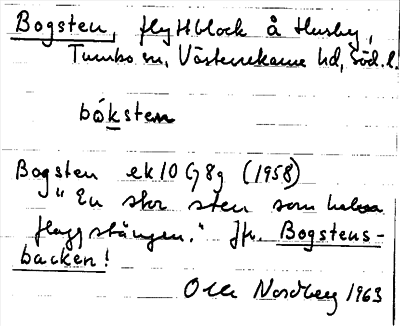 Bogsten, flyttblock å Husby,
Tumbo sn, Västerrekarne hd, Söd. l.
bóksten
Bogsten ek 10 G 8g (1958)
"En stor sten som
flaggstången." Jfr. Bogstens-
backen!
Olle Nordberg 1963